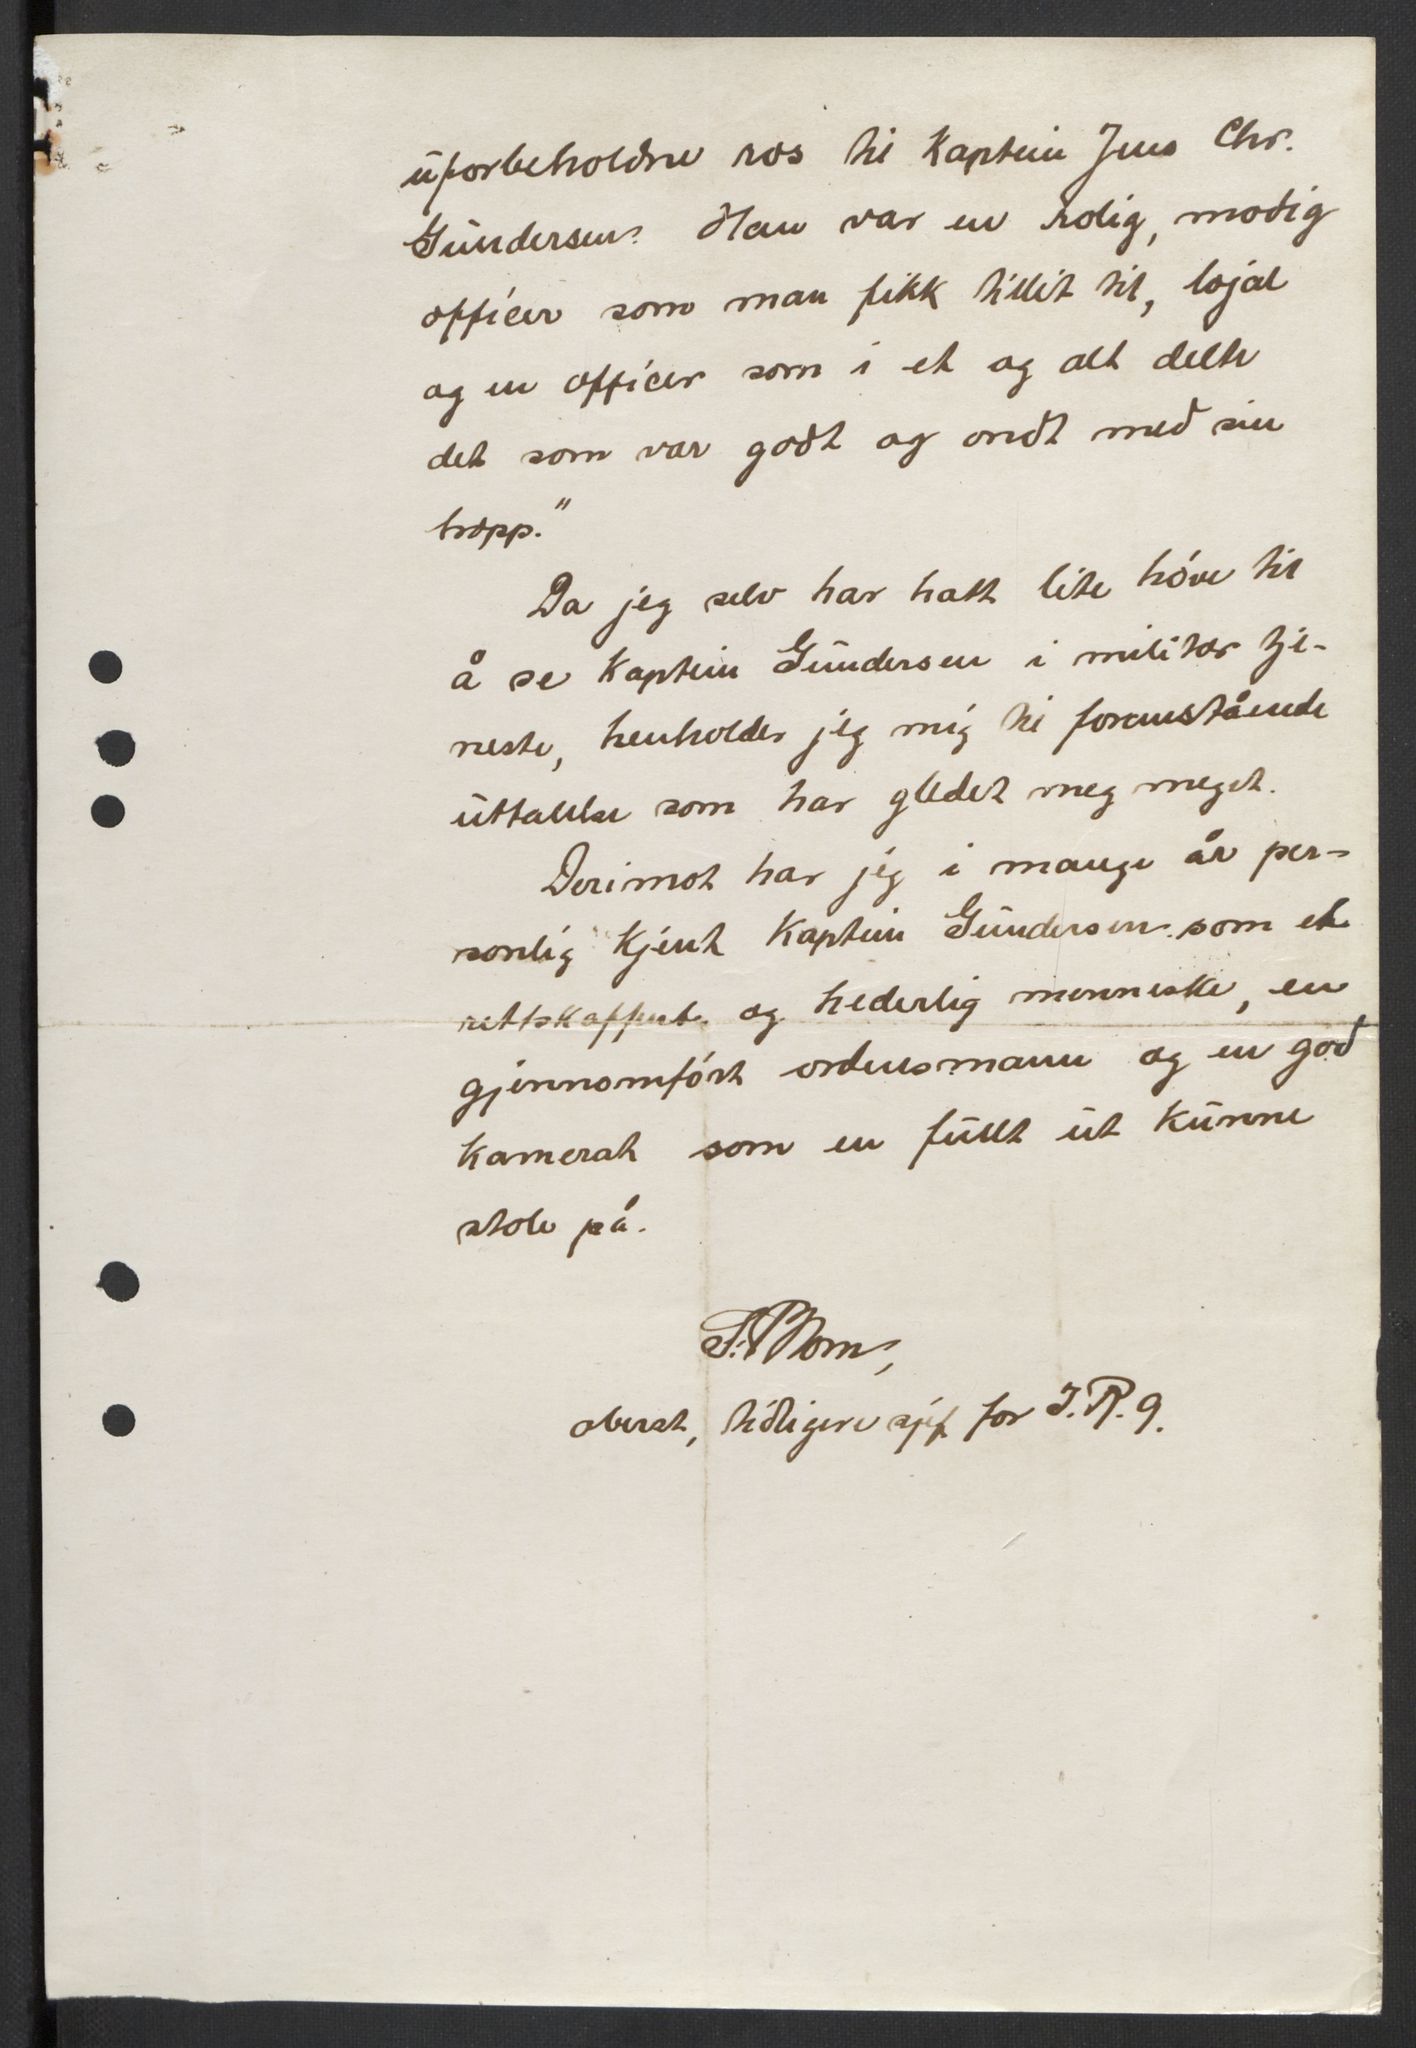 uforbeholdne ros til Kaptein Jens Chr.
Gundersen. Han var en rolig, modig
officer som man fikk tillit til, lojal
og en officer som i et og alt delte
det som var godt og ondt med sin
tropp."
Da jeg selv har hatt lite høve til
å se Kaptein Gundersen i militær tje-
neste, henholder jeg mig til foranstående
uttalelse som har gledet meg meget.
Derimot har jeg i mange år per-
sonlig kjent Kaptein Gundersen som et
rettskaffent og hederlig menneske, en
gjennomført ordensmann og en god
kamerat som en fullt ut kunne
stole på.
oberst, tidligere sjef for I.R. 9.